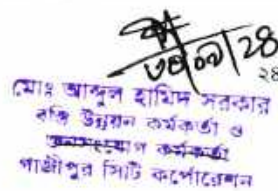 ২৪
মোঃ আব্দুল হামিদ সরকার
বস্তি উন্নয়ন কর্মকর্তা ও
কর্মকর্তা
গাজীপুর সিটি কর্পোরেশন